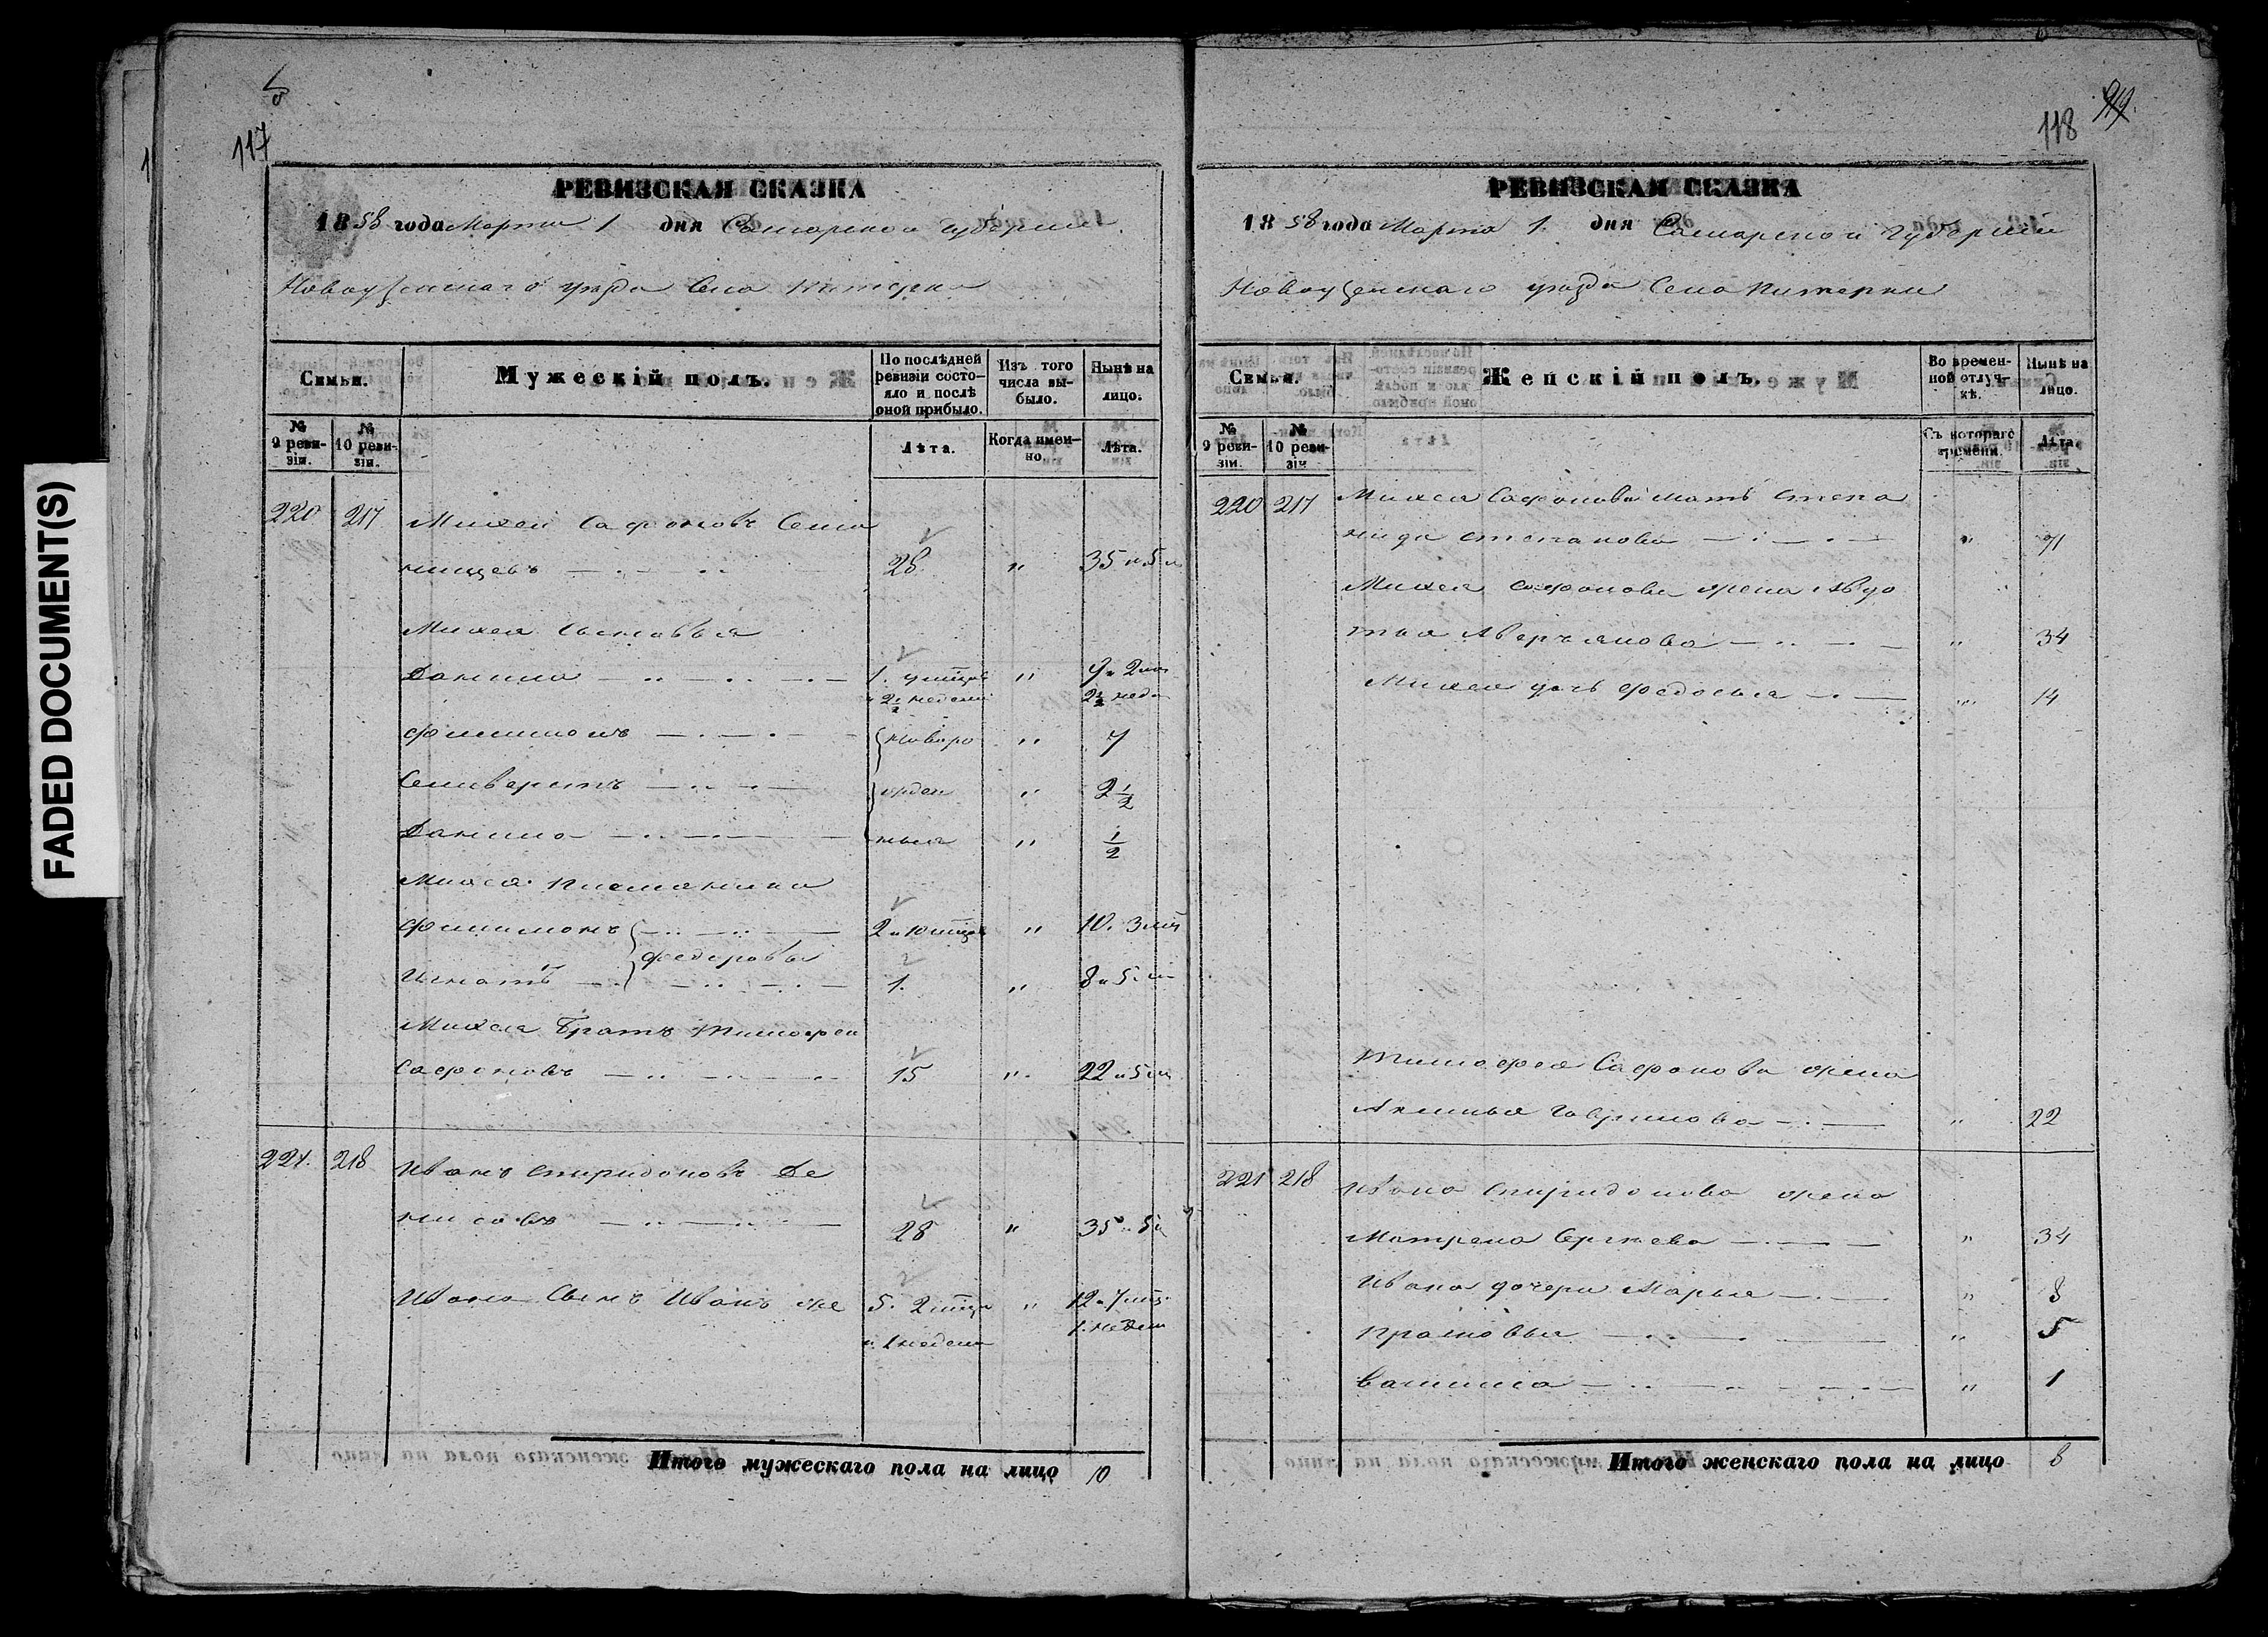 FADED DOCUMENT(S)
117
РЕВИЗСКАЯ СКАЗКА
1858 года Марта 1 дня Самарской губернии
Новоузенскаго уезда Села Питерки
Семьи.
Мужескій полъ.
По послѣдней ревизіи состо-
яло и послѣ оной прибыло.
Изъ того числа вы-
было.
Нынѣ на лицо.
№ 9 реви-
зіи.
№ 10 реви-
зіи.
Лѣта.
Когда имен-
но.
Лѣта.
220 217 Михей Сафоновъ Сема
нищевъ 28 " 35 и 5 м
Михея сыновья
Данила 1. 7 мцовъ " 9 и 2 мц
и 2 1/2 недели 2 1/2 неде
Филимонъ новоро " 7
Селиверстъ жден " 2 1/2
Данила ныя " 1/2
Михея племянники
Филимонъ 2 и 10 мцов " 10. 3 мц
Федоровы
Игнатъ 1. " 8 и 5 м
Михея Братъ Тимофей
Сафоновъ 15 " 22 и 5 м
221. 218 Иванъ Спиридоновъ Де
нисовъ 28 " 35 и 5 м
Ивана Сынъ Иванъ же 5. 2 мцы " 12 и 7 мц
и 1 неделя 1. недели
Итого мужескаго пола на лицо 10
118
РЕВИЗСКАЯ СКАЗКА
1858 года Марта 1. дня Самарской Губерніи
Новоузенскаго уезда Села Питерки
Семьи.
Женскій полъ.
Во времен-
ной отлуч-
кѣ.
Нынѣ на лицо.
№ 9 реви-
зіи.
№ 10 реви-
зіи
Съ котораго времени.
Лѣта.
220 217 Михея Сафонова мать Степа
нида Степанова " 71
Михея Сафонова жена Авдо
тья Аверьянова " 34
Михея дочь Федосья " 14
Тимофея Сафонова жена
Аксинья Гаврилова " 22
221 218 Ивана Спиридонова жена
Матрена Сергеева " 34
Ивана дочери Марья " 8
Прасковья " 5
Василиса " 1
Итого женскаго пола на лицо 8